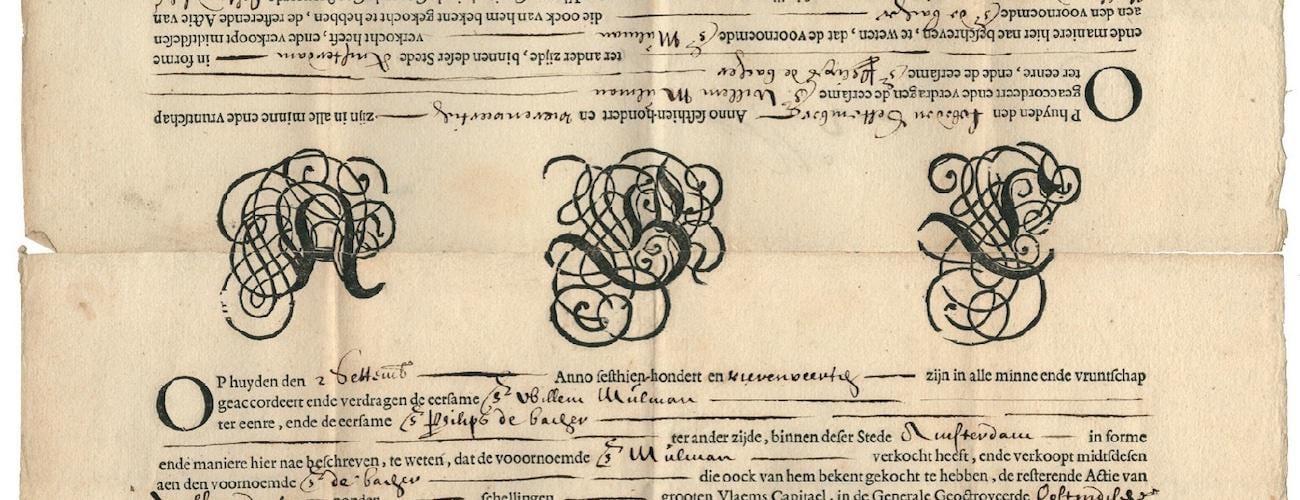 OP huyden den Anno sesthienhondert en vierenveertig zijn in alle minne ende vruntschap
geaccordeert ende verdragen de eersame Sr. Willem Mulman
ter eenre, ende de eersame Sr. Philips de backer
ter ander zijde, binnen deser Stede Amsterdam in forme
ende maniere hier nae beschreven, te weten, dat de voornoemde Sr. Mulman verkocht heeft, ende verkoopt midtsdesen
aen den voornoemde Sr. de backer die oock van hem bekent gekocht te hebben, de resterende Actie van
A B C
OP huyden den 2 Settemb Anno sesthien-hondert en vierenveertig zijn in alle minne ende vruntschap
geaccordeert ende verdragen de eersame Sr. Willem Mulman
ter eenre, ende de eersame Sr. Philips de backer
ter ander zijde, binnen deser Stede Amsterdam in forme
ende maniere hier nae beschreven, te weten, dat de vooornoemde Sr. Mulman verkocht heeft, ende verkoopt midtsdesen
aen den voornoemde Sr. de backer die oock van hem bekent gekocht te hebben, de resterende Actie van
schellingen grooten Vlaems Capitael, in de Generale Geoctroyeerde